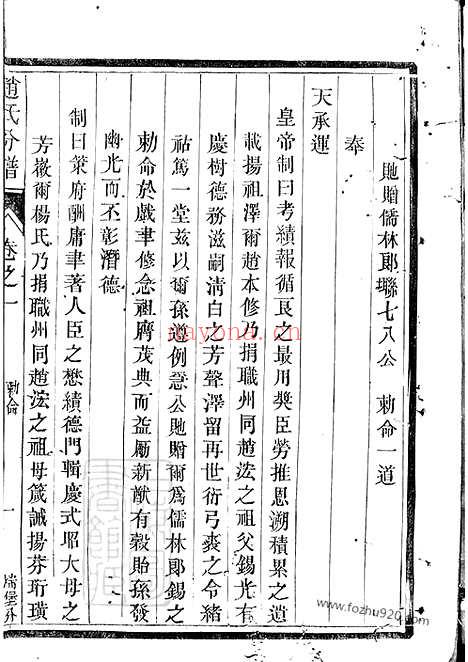 貤贈儒林郎聯七八公　勅命一道
奉
天承運
皇帝制曰考績報循良之最用獎臣勞推恩溯積累之遺
載揚祖澤爾趙本修乃捐職州同趙浤之祖父錫光有
慶樹德務滋嗣清白之芳聲澤留再世衍弓裘之令緒
祜篤一堂茲以爾孫遵例急公貤贈爾爲儒林郎錫之
勅命於戲聿修念祖膺茂典而益勵新猷有穀貽孫發
幽光而丕彰潛德
制曰策府酬庸聿著人臣之懋績德門輯慶式昭大母之
芳徽爾楊氏乃捐職州同趙浤之祖母箴誡揚芬珩璜
趙氏分譜
卷之一
勅命
一
nayona.cn
www.fozhu920.com